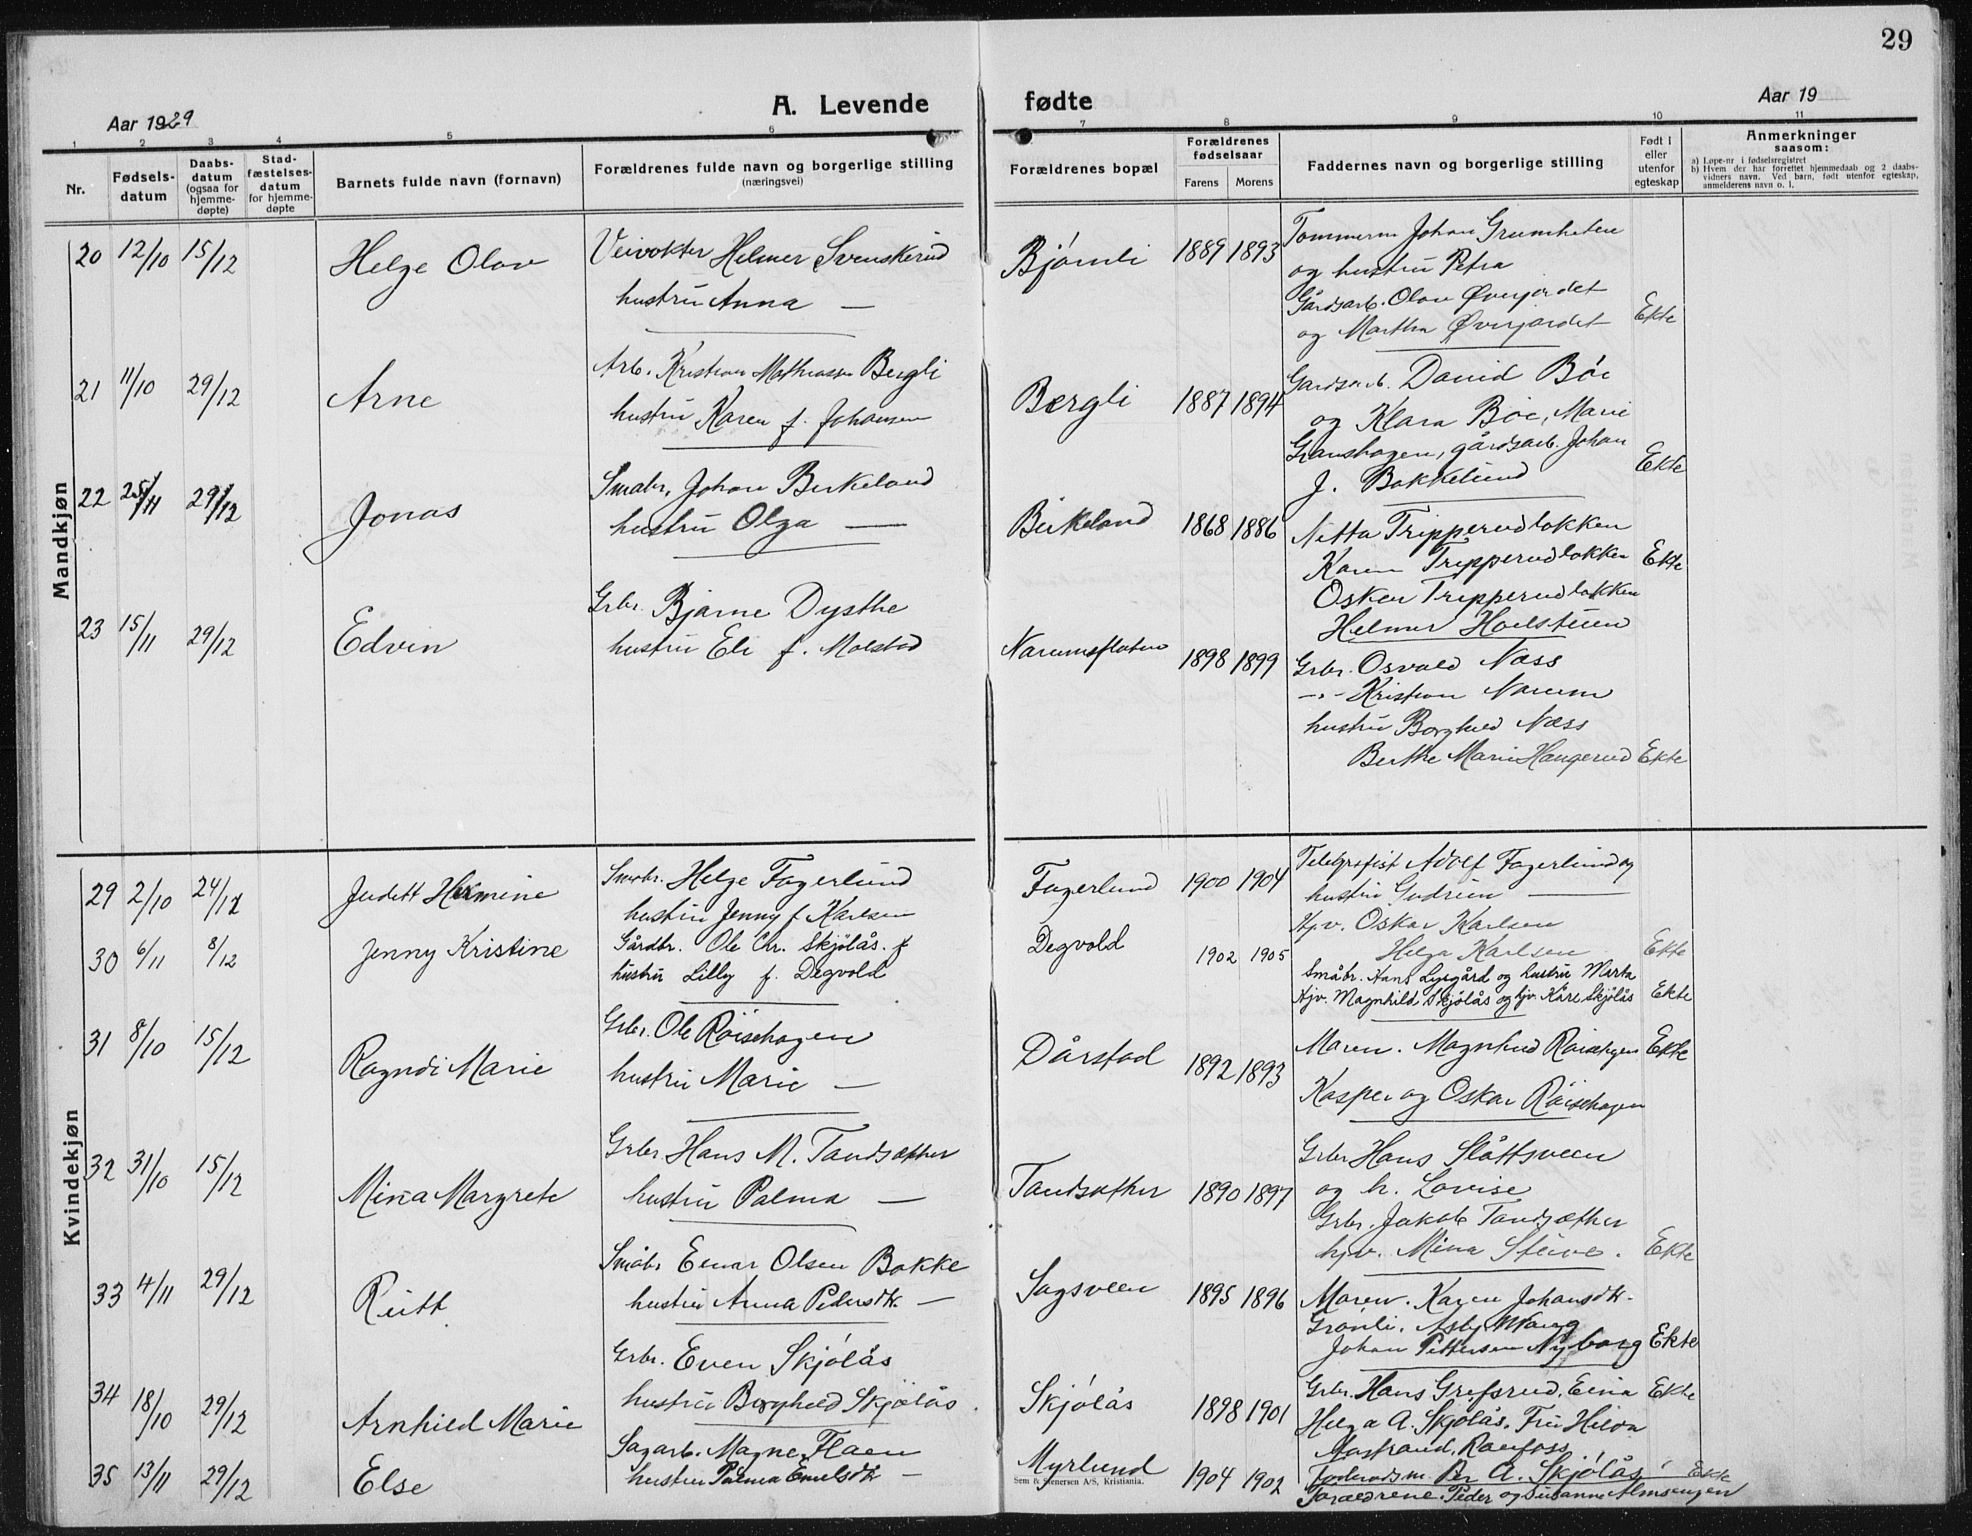 29
A. Levende fødte
Aar 1929
Aar 19
1 2 3 4 5 6 7 8 9 10 11
Nr.
Fødsels-
datum
Daabs-
datum
(ogsaa for
hjemme-
døpte)
Stad-
fæstelses-
datum
for hjemme-
døpte
Barnets fulde navn (fornavn)
Forældrenes fulde navn og borgerlige stilling
(næringsvei)
Forældrenes bopæl
Forældrenes
fødselsaar
Farens Morens
Faddernes navn og borgerlige stilling
Født i
eller
utenfor
egteskap
Anmerkninger
saasom:
a) Løpe-nr i fødselsregistret
b) Hvem der har forrettet hjemmedaab og 2 daabs-
vidners navn. Ved barn, født utenfor egteskap,
anmelderens navn o. l.
Mandkjøn
20 12/10 15/12 Helge Olov
Veivokter Helmer Svenskerud
hustru Anna —
Bjørnli 1889 1893
Tommerm Johan Grumheten
og hustru Petra
Gårdsarb. Olav Øverjordet
og Martha Øverjordet Ekte
21 11/10 29/12 Arne
Arb. Kristian Mathiassen Bergli
hustru Karen f. Johansen
Bergli 1887 1894
Gardsarb. David Böe
og Klara Böe, Marie
Granshagen, gårdsarb. Johan
J. Bakkelund Ekte
22 25/11 29/12 Jonas
Småbr. Johan Birkeland
hustru Olga —
Birkeland 1868 1886
Nitta Tripperudløkken
Karen Tripperudløkken Ekte
Oskar Tripperudløkken
Helmer Holsteen
23 15/11 29/12 Edvin
Grbr. Bjarne Dysthe
hustru Eli f. Molstad
Narumsflaten 1898 1899
Grbr. Osvald Næss
-"- Kristian Narum
hustru Borghild Næss
Berthe Marie Haugerud Ekte
Kvindekjøn
29 2/10 24/12 Juditt Hermine
Småbr. Helge Fagerlund
hustru Jenny f Karlsen
Fagerlund 1900 1904
Telegrafist Adolf Fagerlund og
hustru Gudrun —
Hjv. Oskar Karlsen
Helga Karlsen Ekte
30 6/11 8/12 Jenny Kristine
Gårdbr. Ole Chr. Skjølås. f
hustru Lilly f. Degvold
Degvold 1902 1905
Småbr. Hans Lysgård og hustru Marta
Hjv. Magnhild Skjølås og hjv. Kåre Skjølås Ekte
31 8/10 15/12 Ragndi Marie
Grbr. Ole Röisehagen
hustru Marie —
Dårstad 1892 1893
Maren. Magnhild Röisehagen Ekte
Kasper og Oskar Röisehagen
32 31/10 15/12 Mina Margrete
Grbr. Hans M. Tandsæther
hustru Palma —
Tandsæther 1890 1897
Grbr Hans Slåttsveen
og h. Lovise
Grbr. Jakob Tandsæther
hjv. Mina Steive. Ekte
33 4/11 29/12 Rutt
Småbr Einar Olsen Bakke
hustru Anna Pedersdtr. —
Sagsveen 1895 1896
Maren. Karen Johansdtr.
Grønli. Asbj. Haug
Johan Pettersen Nyborg Ekte
34 18/10 29/12 Arnhild Marie
Grbr. Even Skjølås
hustru Borghild Skjølås.
Skjølås 1898 1901
Grbr. Hans Grefsrud. Eina Ekte
Helga A. Skjølås. Fru Hilda
Aastrand. Raufoss
Föderådsm. Per A. Skjølås
35 13/11 29/12 Else
Sagarb. Magne Flaen
hustru Palma Emilsdtr —
Myrlund 1904 1902
Ekte
Foreldrene. Peder og Susanne Almsengen
Sem & Stenersen A/S, Kristiania.